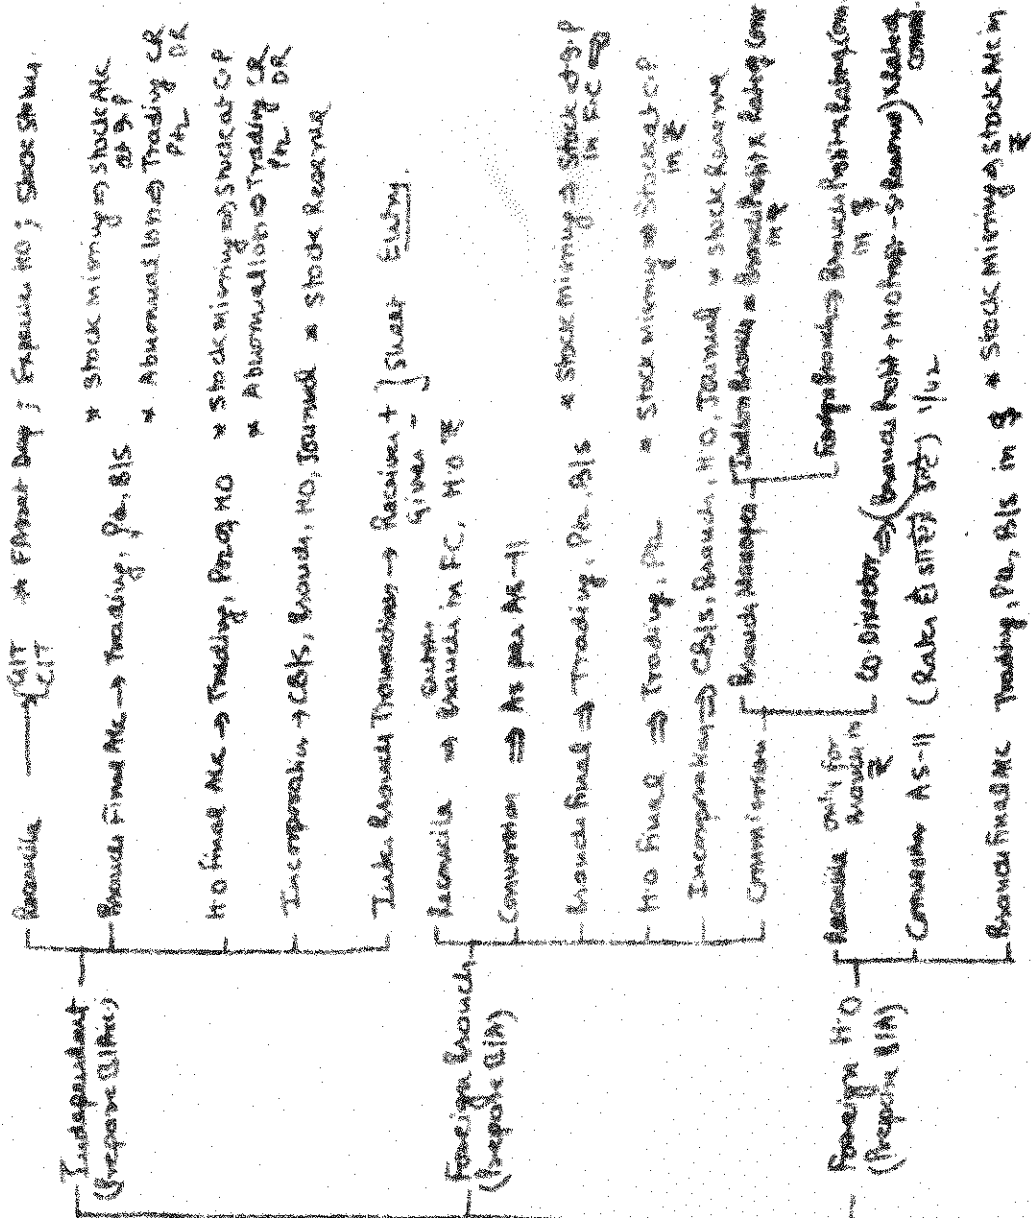 Independent
(Prepare B/Acc.)
Reconcile → GIT
CIT
* FA Past Dep ; Expense HO ; Stock Stolen.
Branch Final A/c → Trading, P&L, B/S
* Stock missing ⇒ Stock A/c
at I.P
* Abnormal loss ⇒ Trading CR
P&L DR
H.O Final A/c → Trading, P&L of HO
* Stock missing ⇒ Stock at C.P
* Abnormal loss ⇒ Trading CR
P&L DR
Incorporation → CB/S, Branch, HO, Journal * Stock Reserve
Inter Branch Transactions → Receiver +
Giver -
} Sheet Entry.
Foreign Branch
(Prepare B/A)
Reconcile ⇒ Branch in FC, HO ₹
Conversion ⇒ As per AS-11
Branch Final ⇒ Trading, P&L, B/S
* Stock missing ⇒ Stock at I.P
in F.C
H.O Final ⇒ Trading, P&L
* Stock missing ⇒ Stock at C.P
in ₹
Incorporation ⇒ CB/S, Branch, H.O, Journal * Stock Reserve
Commission
Branch Manager
Indian Branch = Branch Profit x Rate of Com
in ₹
Foreign Branch ⇒ Branch Profit x Rate of Com.
in $
Co. Director ⇒ (Branch Profit + HO Profit - S. Reserve) x Rate of
Comm.
Foreign H.O
(Prepare B/A)
Reconcile only for
Branch in
₹
Conversion AS-11 (Rate 1/42
Branch Final A/c Trading, P&L, B/S in $ * Stock Missing ⇒ Stock A/c in
₹